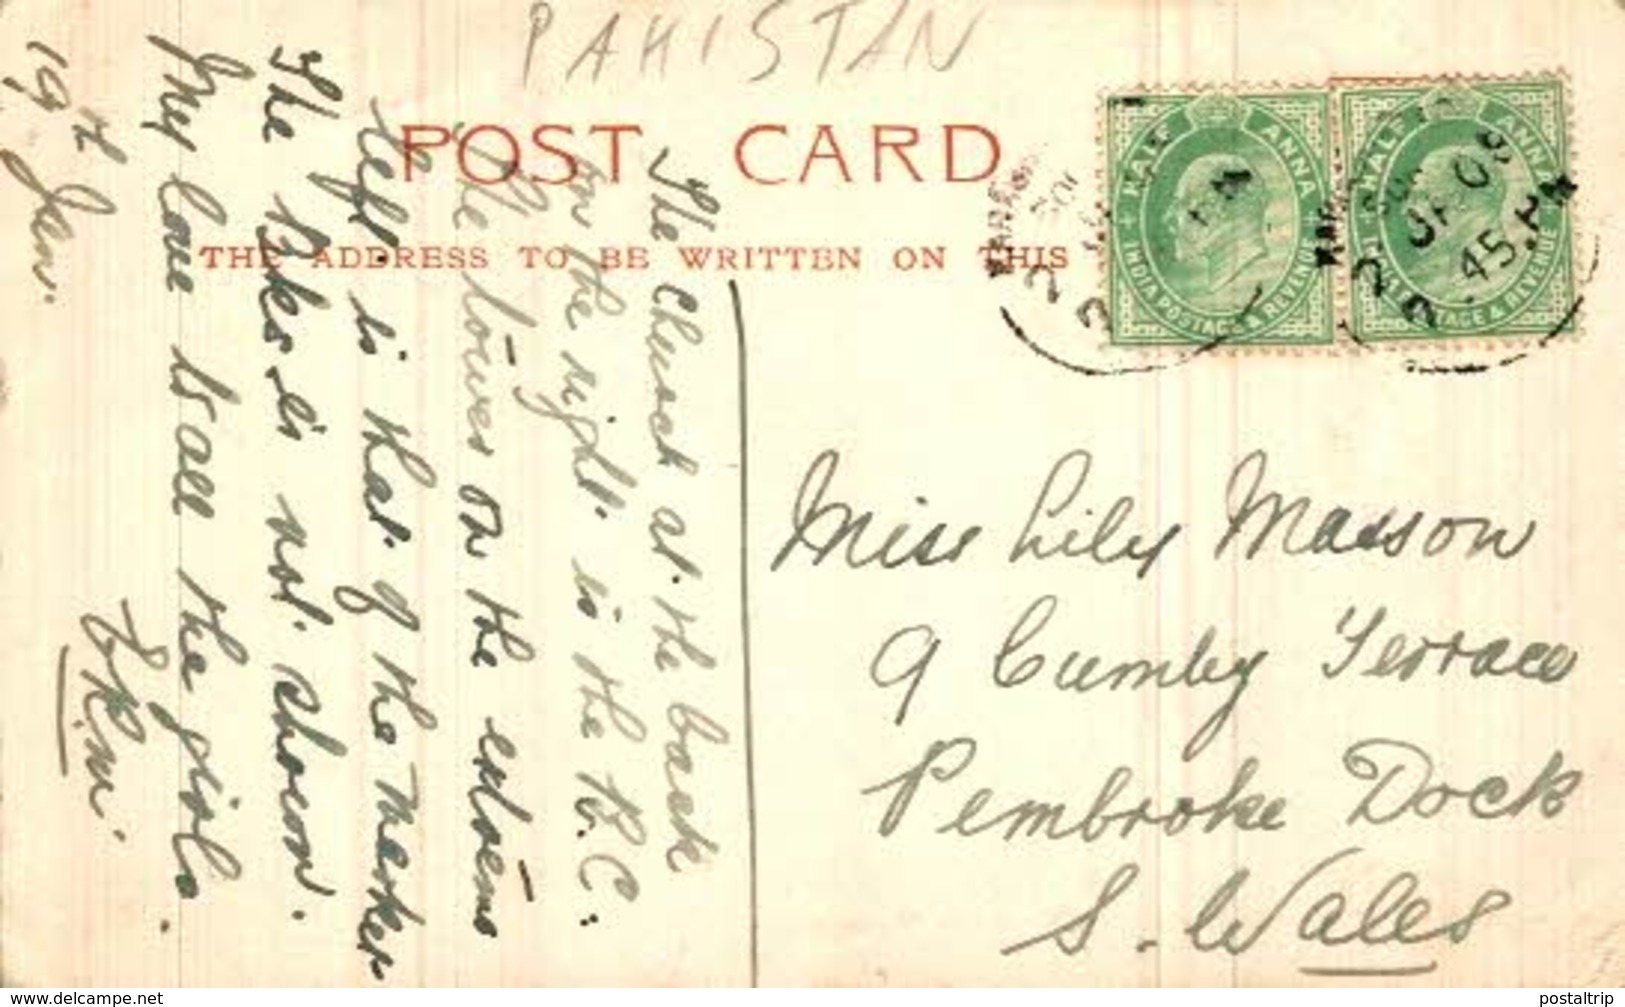 PAHISTAN
POST CARD
THE ADDRESS TO BE WRITTEN ON THIS
HALF ANNA
INDIA POSTAGE & REVENUE
HALF ANNA
POSTAGE & REVENUE
08
2 .45.PM
Miss Lily Masson
9 Cumby Terrace
Pembroke Dock
S. Wales
The Church at. the back
on the right. is the R.C.
The towers on the extreme
left is that of the market
The Bks is not. shown.
My love to all the girls.
19th Jan.
www.delcampe.net
postaltrip